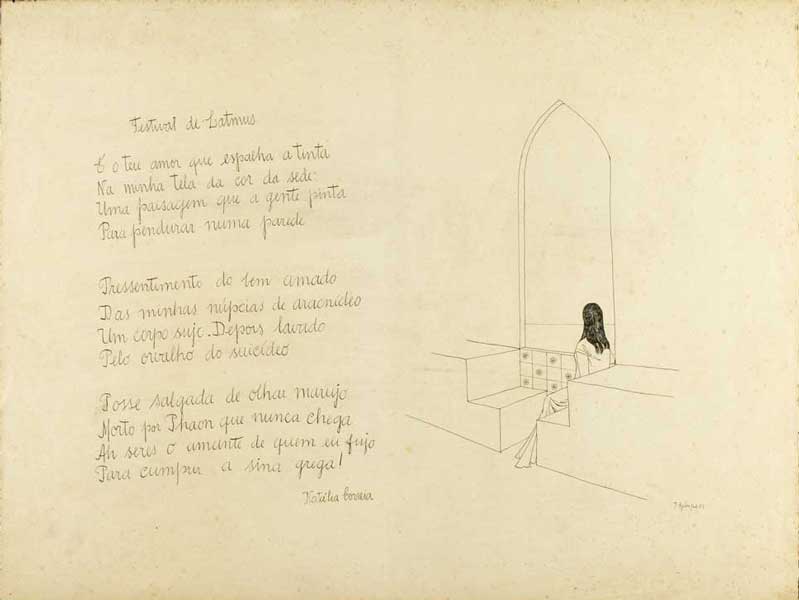 Festival de Latmus
É o teu amor que espalha a tinta
Na minha tela da cor da sede:
Uma paisagem que a gente pinta
Para pendurar numa parede
Pressentimento do bem amado
Das minhas núpcias de aracnídeo
Um corpo sujo. Depois lavado
Pelo orvalho do suicídeo
Posse salgada de olhar marujo
Morto por Phaon que nunca chega
Ah seres o amante de quem eu fujo
Para cumprir a sina grega!
Natália Correia